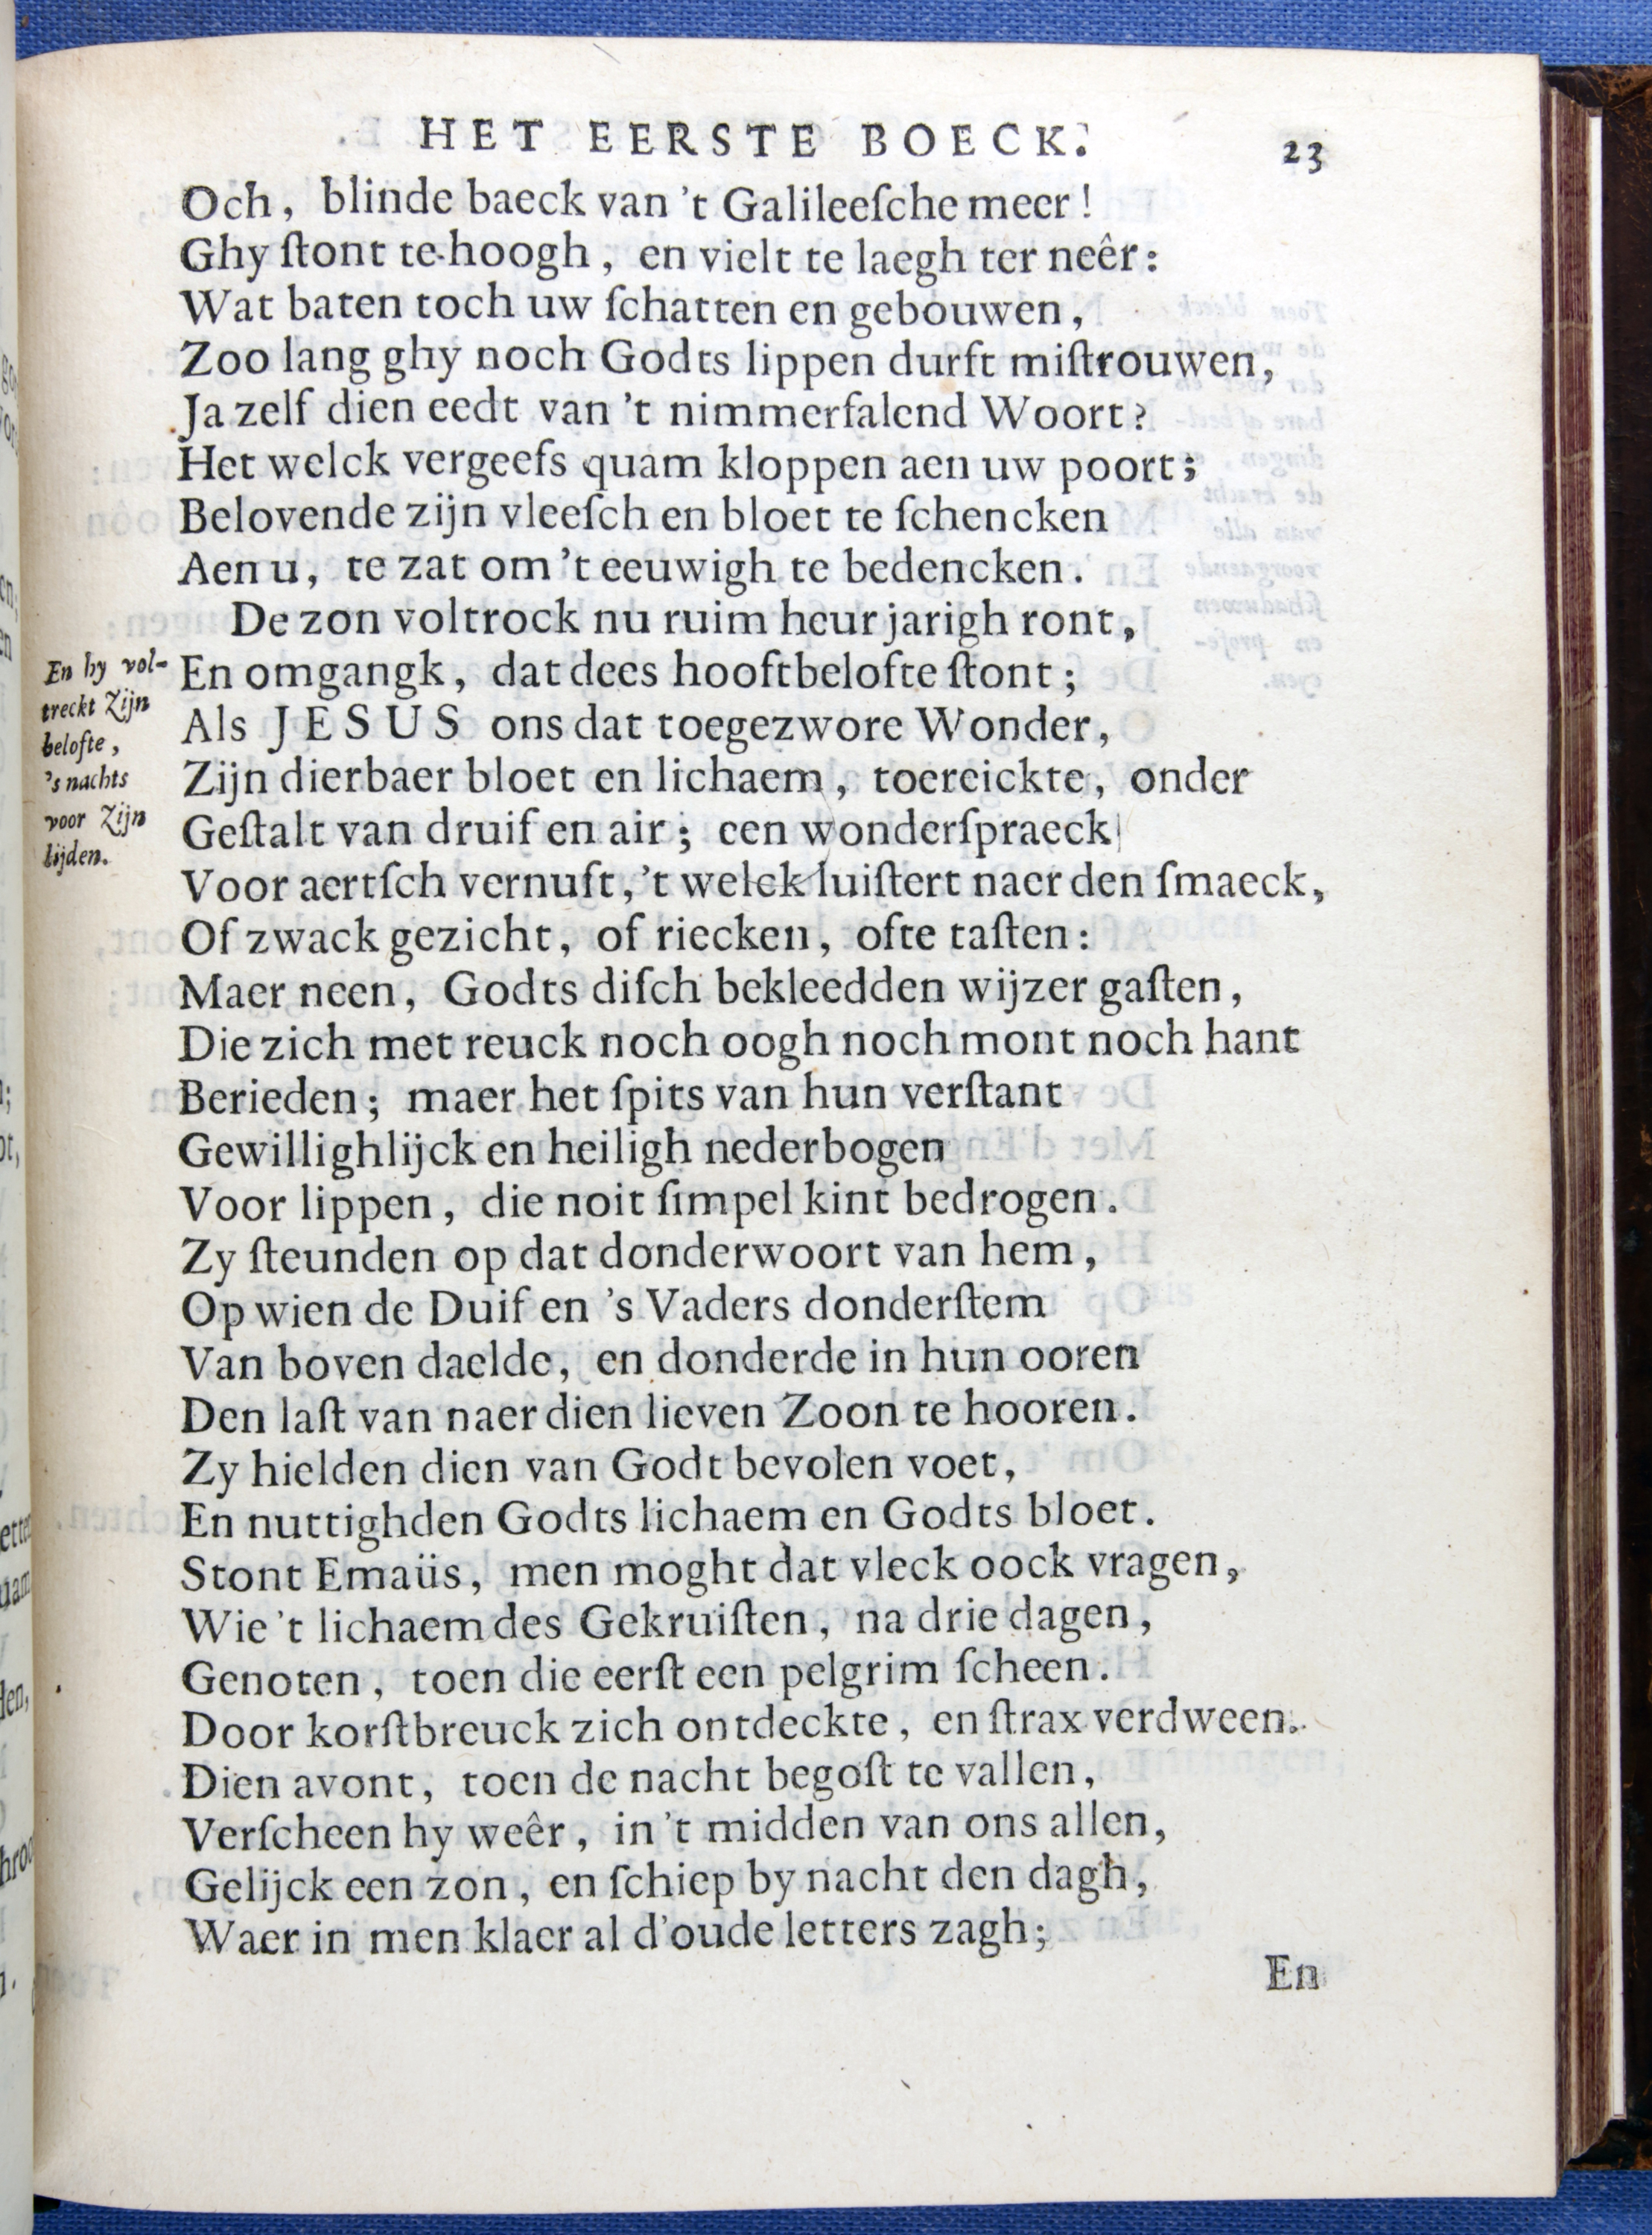 HET EERSTE BOECK.
23
Och, blinde baeck van 't Galileeſche meer!
Ghy ſtont te hoogh, en vielt te laegh ter neêr:
Wat baten toch uw ſchatten en gebouwen,
Zoo lang ghy noch Godts lippen durft miſtrouwen,
Ja zelf dien eedt van 't nimmerfalend Woort?
Het welck vergeefs quam kloppen aen uw poort;
Belovende zijn vleeſch en bloet te ſchencken
Aen u, te zat om 't eeuwigh te bedencken.
De zon voltrock nu ruim heur jarigh ront,
En hy vol-
treckt Zijn
belofte,
's nachts
voor Zijn
lijden.
En omgangk, dat dees hooftbelofte ſtont;
Als JESUS ons dat toegezwore Wonder,
Zijn dierbaer bloet en lichaem, toereickte, onder
Geſtalt van druif en air; een wonderſpraeck
Voor aertſch vernuft, 't welck luiſtert naer den ſmaeck,
Of zwack gezicht, of riecken, ofte taſten:
Maer neen, Godts diſch bekleedden wijzer gaſten,
Die zich met reuck noch oogh noch mont noch hant
Berieden; maer het ſpits van hun verſtant
Gewillighlijck en heiligh nederbogen
Voor lippen, die noit ſimpel kint bedrogen.
Zy ſteunden op dat donderwoort van hem,
Op wien de Duif en 's Vaders donderſtem
Van boven daelde, en donderde in hun ooren
Den laſt van naer dien lieven Zoon te hooren.
Zy hielden dien van Godt bevolen voet,
En nuttighden Godts lichaem en Godts bloet.
Stont Emaüs, men moght dat vleck oock vragen,
Wie 't lichaem des Gekruiſten, na drie dagen,
Genoten, toen die eerſt een pelgrim ſcheen.
Door korſtbreuck zich ontdeckte, en ſtrax verdween.
Dien avont, toen de nacht begoſt te vallen,
Verſcheen hy weêr, in 't midden van ons allen,
Gelijck een zon, en ſchiep by nacht den dagh,
Waer in men klaer al d'oude letters zagh;
En